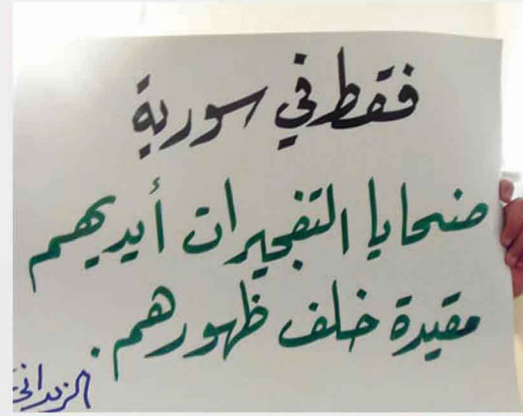 فقط في سورية
ضحايا التفجيرات أيديهم
مقيدة خلف ظهورهم.
الزبداني